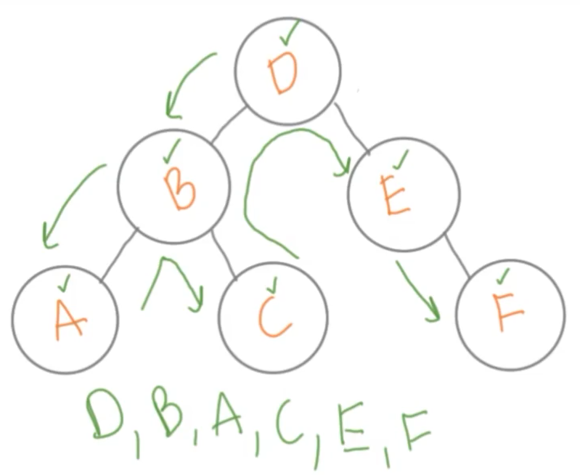 D
B
E
A
C
F
D, B, A, C, E, F